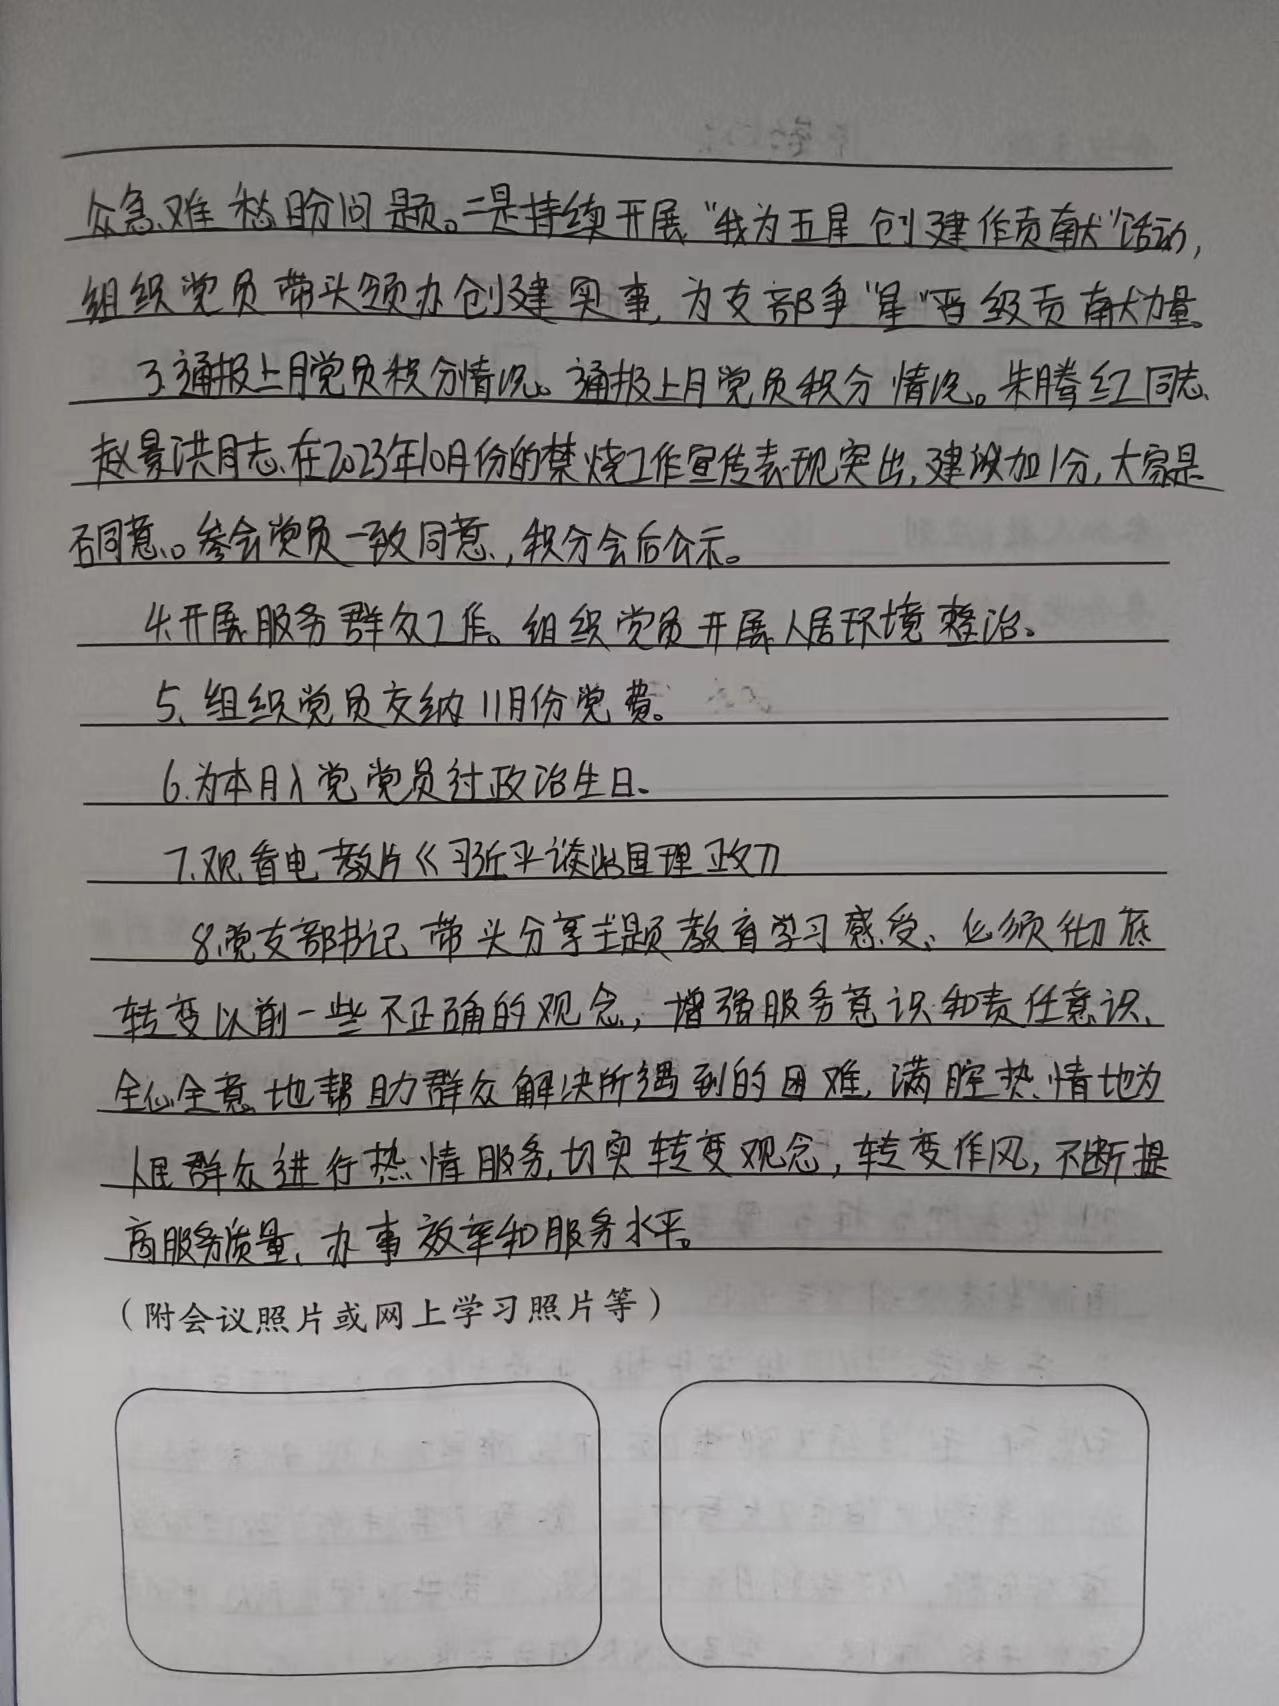 众急难愁盼问题。二是持续开展“我为五星创建作贡献”活动,
组织党员带头领办创建实事,为支部争“星”晋级贡献力量。
3.通报上月党员积分情况。通报上月党员积分情况。朱腾红同志、
赵景洪同志、在2023年10月份的禁烧工作宣传表现突出,建议加1分,大家是
否同意。参会党员一致同意,积分会后公示。
4.开展服务群众工作。组织党员开展人居环境整治。
5、组织党员交纳11月份党费。
6.为本月入党党员过政治生日、
7.观看电教片《习近平谈治国理政》
8.党支部书记带头分享主题教育学习感受、必须彻底
转变以前一些不正确的观念,增强服务意识和责任意识、
全心全意地帮助群众解决所遇到的困难,满腔热情地为
人民群众进行热情服务,切实转变观念,转变作风,不断提
高服务质量、办事效率和服务水平。
(附会议照片或网上学习照片等)